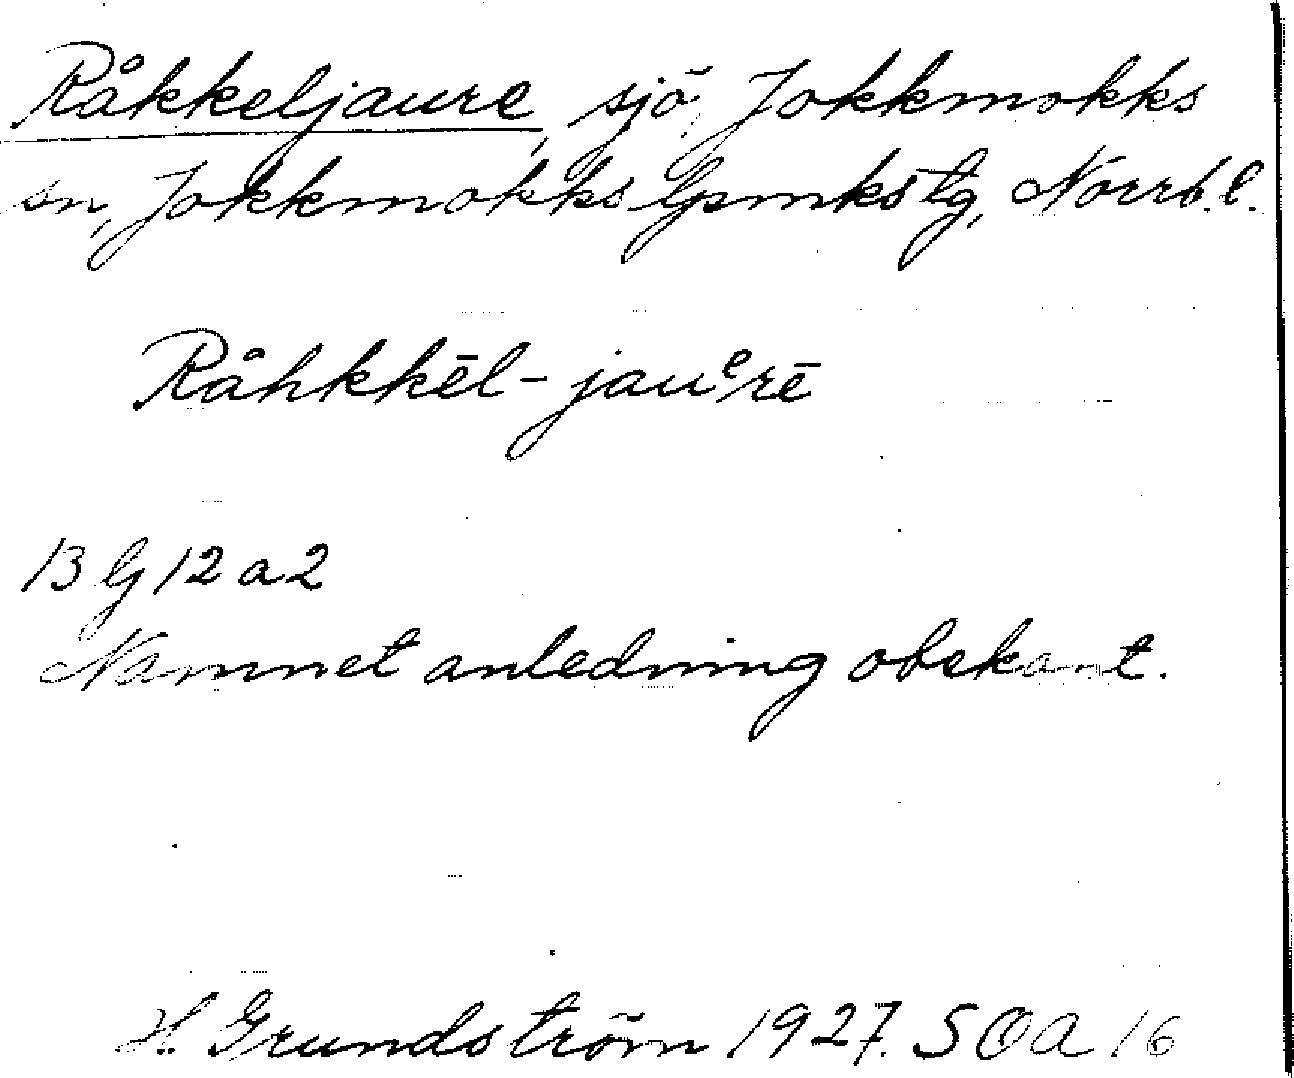 Råkkeljaure, sjö, Jokkmokks
sn, Jokkmokks lpmkstg, Norrb. l.
Råhkkēl-jauᵉrē
13 G 12 a 2
Namnet anledning obekant.
H. Grundström 1927. SOA 16